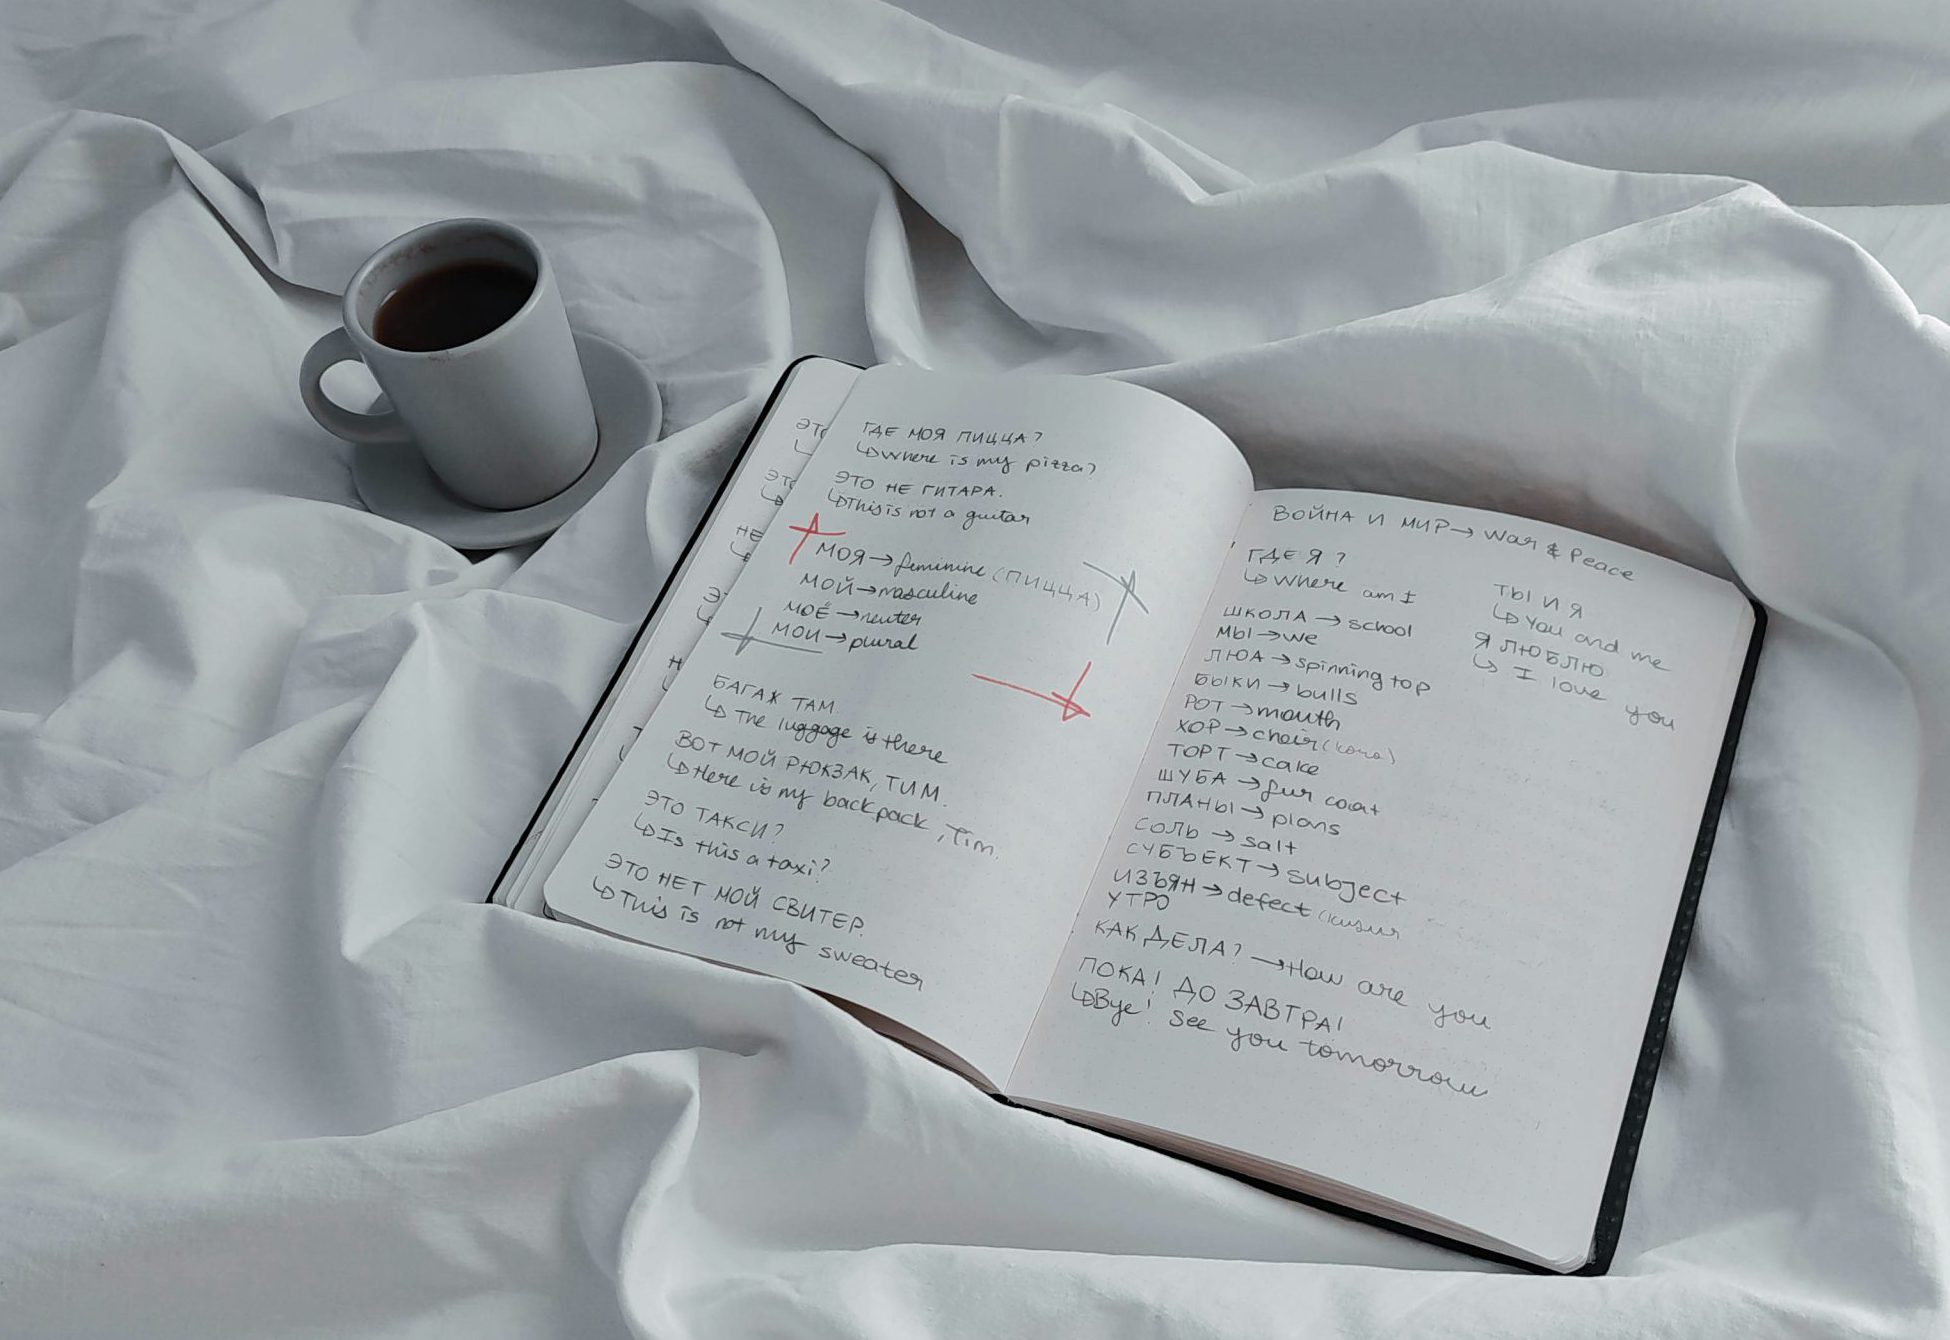 ЭТО
ЭТО
НЕ
Э
Н
ГДЕ МОЯ ПИЦЦА?
↳ Where is my pizza?
ЭТО НЕ ГИТАРА.
↳ This is not a guitar
МОЯ → feminine (ПИЦЦА)
МОЙ → masculine
МОЁ → neuter
МОИ → plural
БАГАЖ ТАМ.
↳ The luggage is there
ВОТ МОЙ РЮКЗАК, ТИМ.
↳ Here is my backpack, Tim.
ЭТО ТАКСИ?
↳ Is this a taxi?
ЭТО НЕТ МОЙ СВИТЕР.
↳ This is not my sweater
ВОЙНА И МИР → War & Peace
ГДЕ Я?
↳ Where am I
ШКОЛА → school
МЫ → we
ЛЮА → spinning top
БЫКИ → bulls
РОТ → mouth
ХОР → choir
ТОРТ → cake
ШУБА → fur coat
ПЛАНЫ → plans
СОЛЬ → salt
СУБЪЕКТ → subject
ИЗЪЯН → defect
УТРО
КАК ДЕЛА? → How are you
ПОКА! ДО ЗАВТРА!
↳ Bye! See you tomorrow
ТЫ И Я
↳ You and me
Я ЛЮБЛЮ
↳ I love you